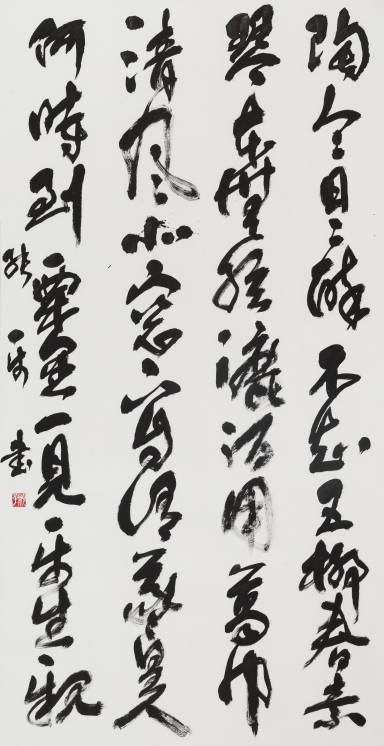 陶令日々醉不知五柳春素
琴本無弦漉酒用葛巾
清風北窗下自謂羲皇人
何時到栗里一見平生親
書